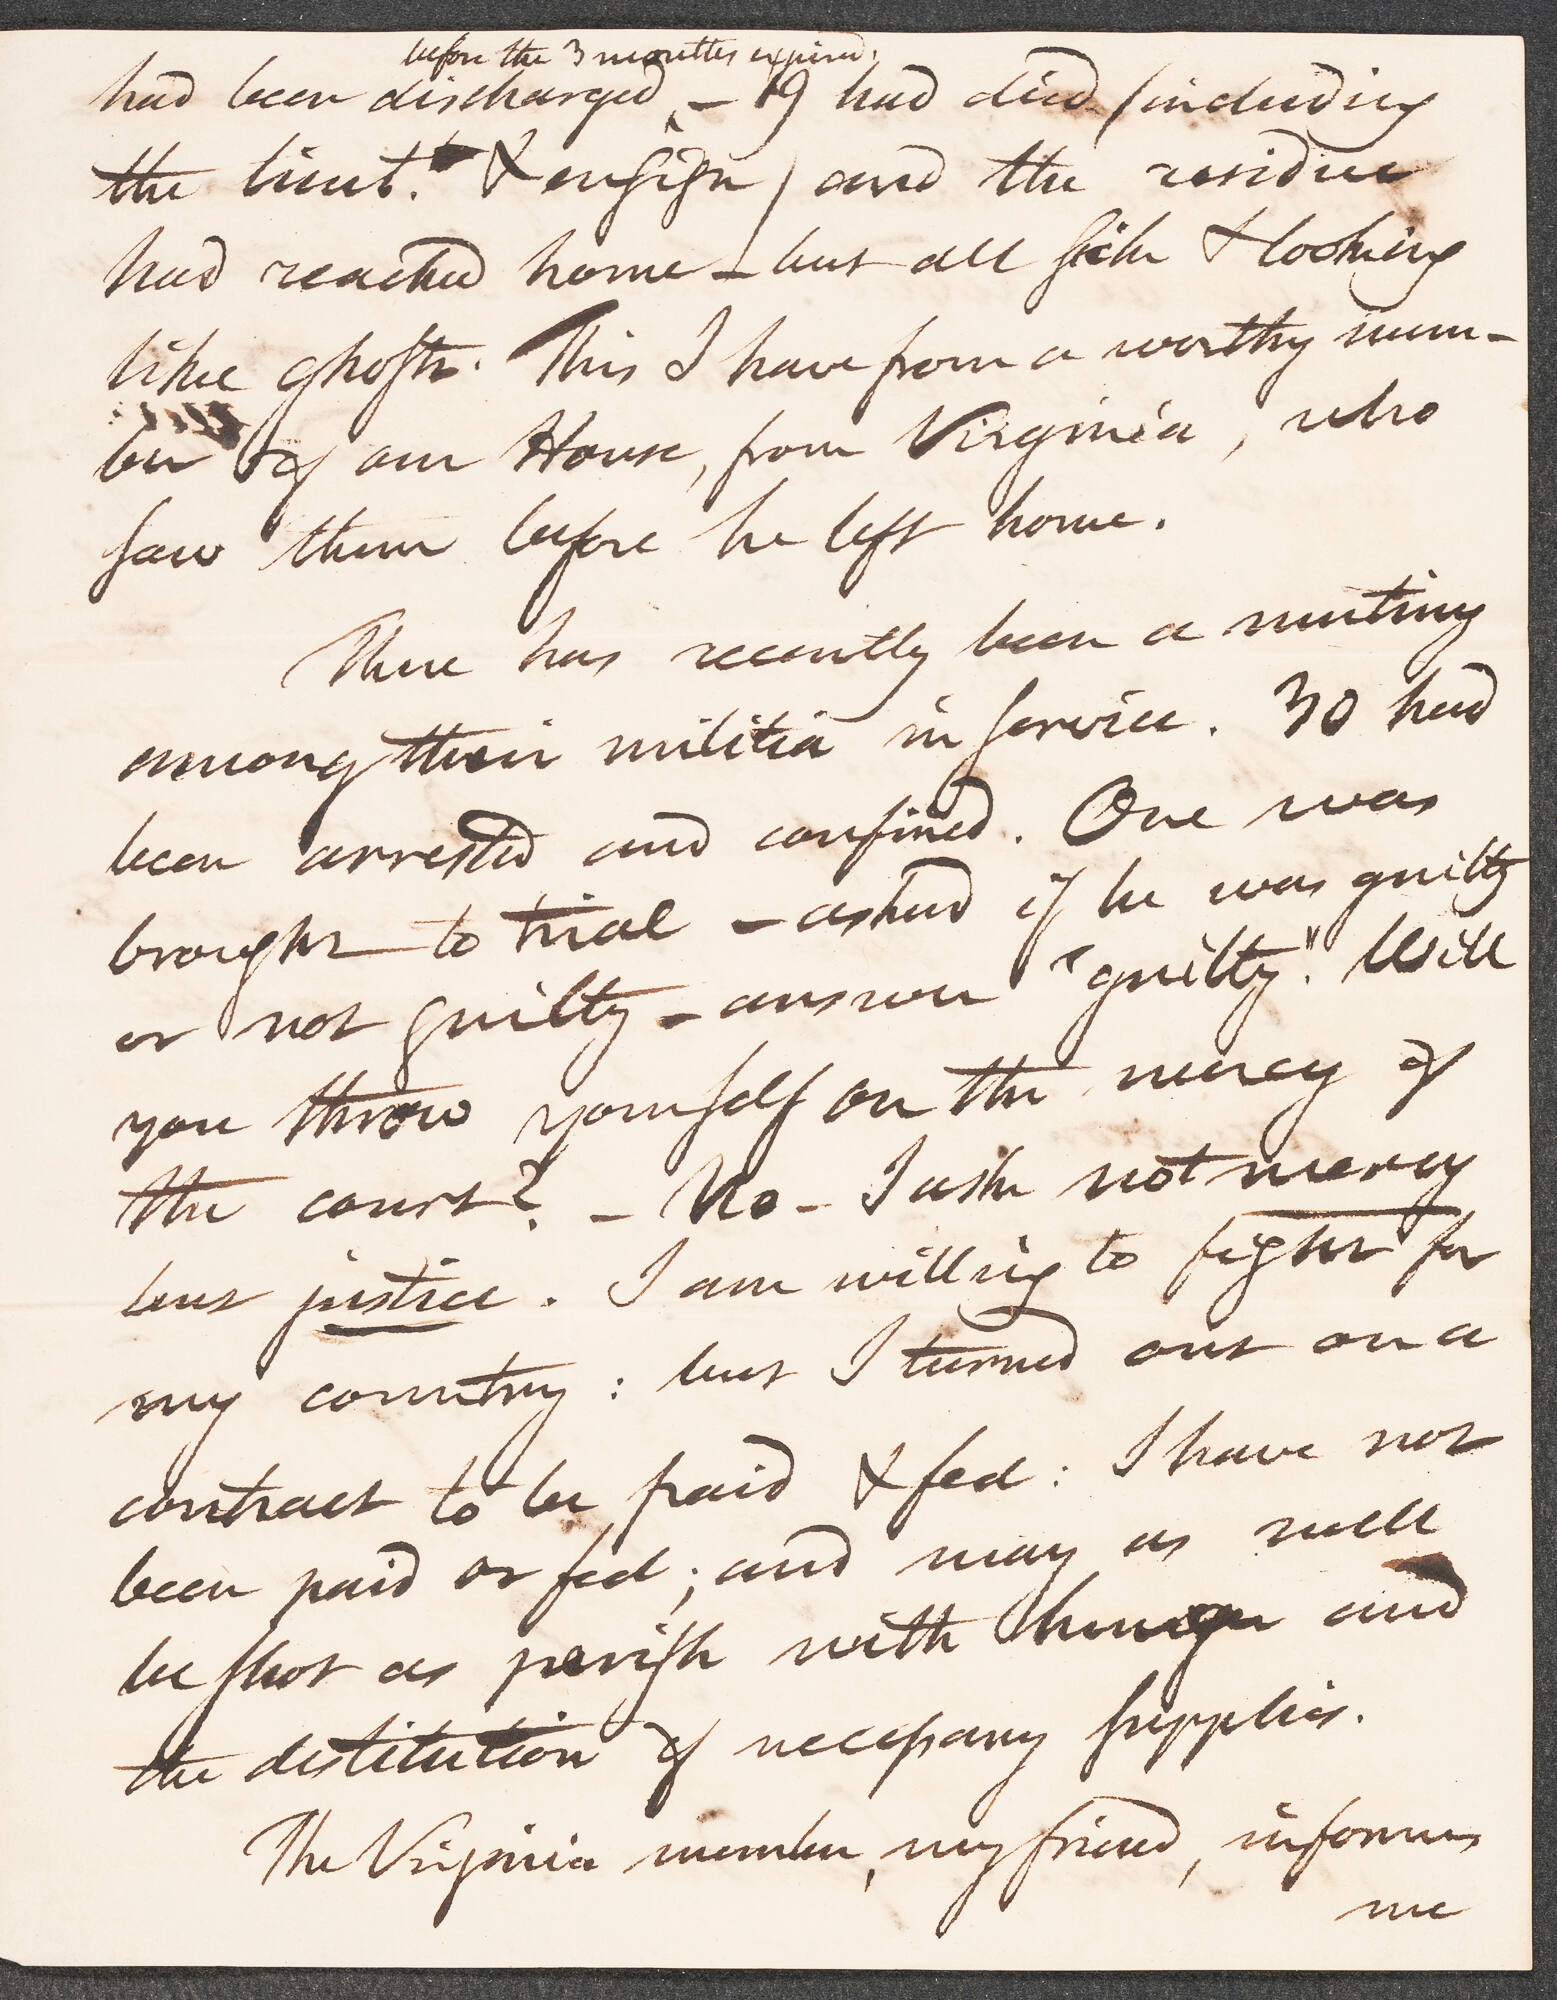 before the 3 months expired,
had been discharged, – 19 had died (including
the lieut. & ensign) and the residue
had reached home – but all sick & looking
like ghosts. This I have from a worthy mem-
ber of our House, from Virginia, who
saw them before he left home.
There has recently been a mutiny
among their militia in service. 30 had
been arrested and confined. One was
brought to trial – asked if he was guilty
or not guilty – answer "guilty". Will
you throw yourself on the mercy of
the court? – No – I ask not mercy
but justice. I am willing to fight for
my country: but I turned out on a
contract to be paid & fed: I have not
been paid or fed; and may as well
be shot as perish with hunger and
the destitution of necessary supplies.
The Virginia member, my friend, informs
me